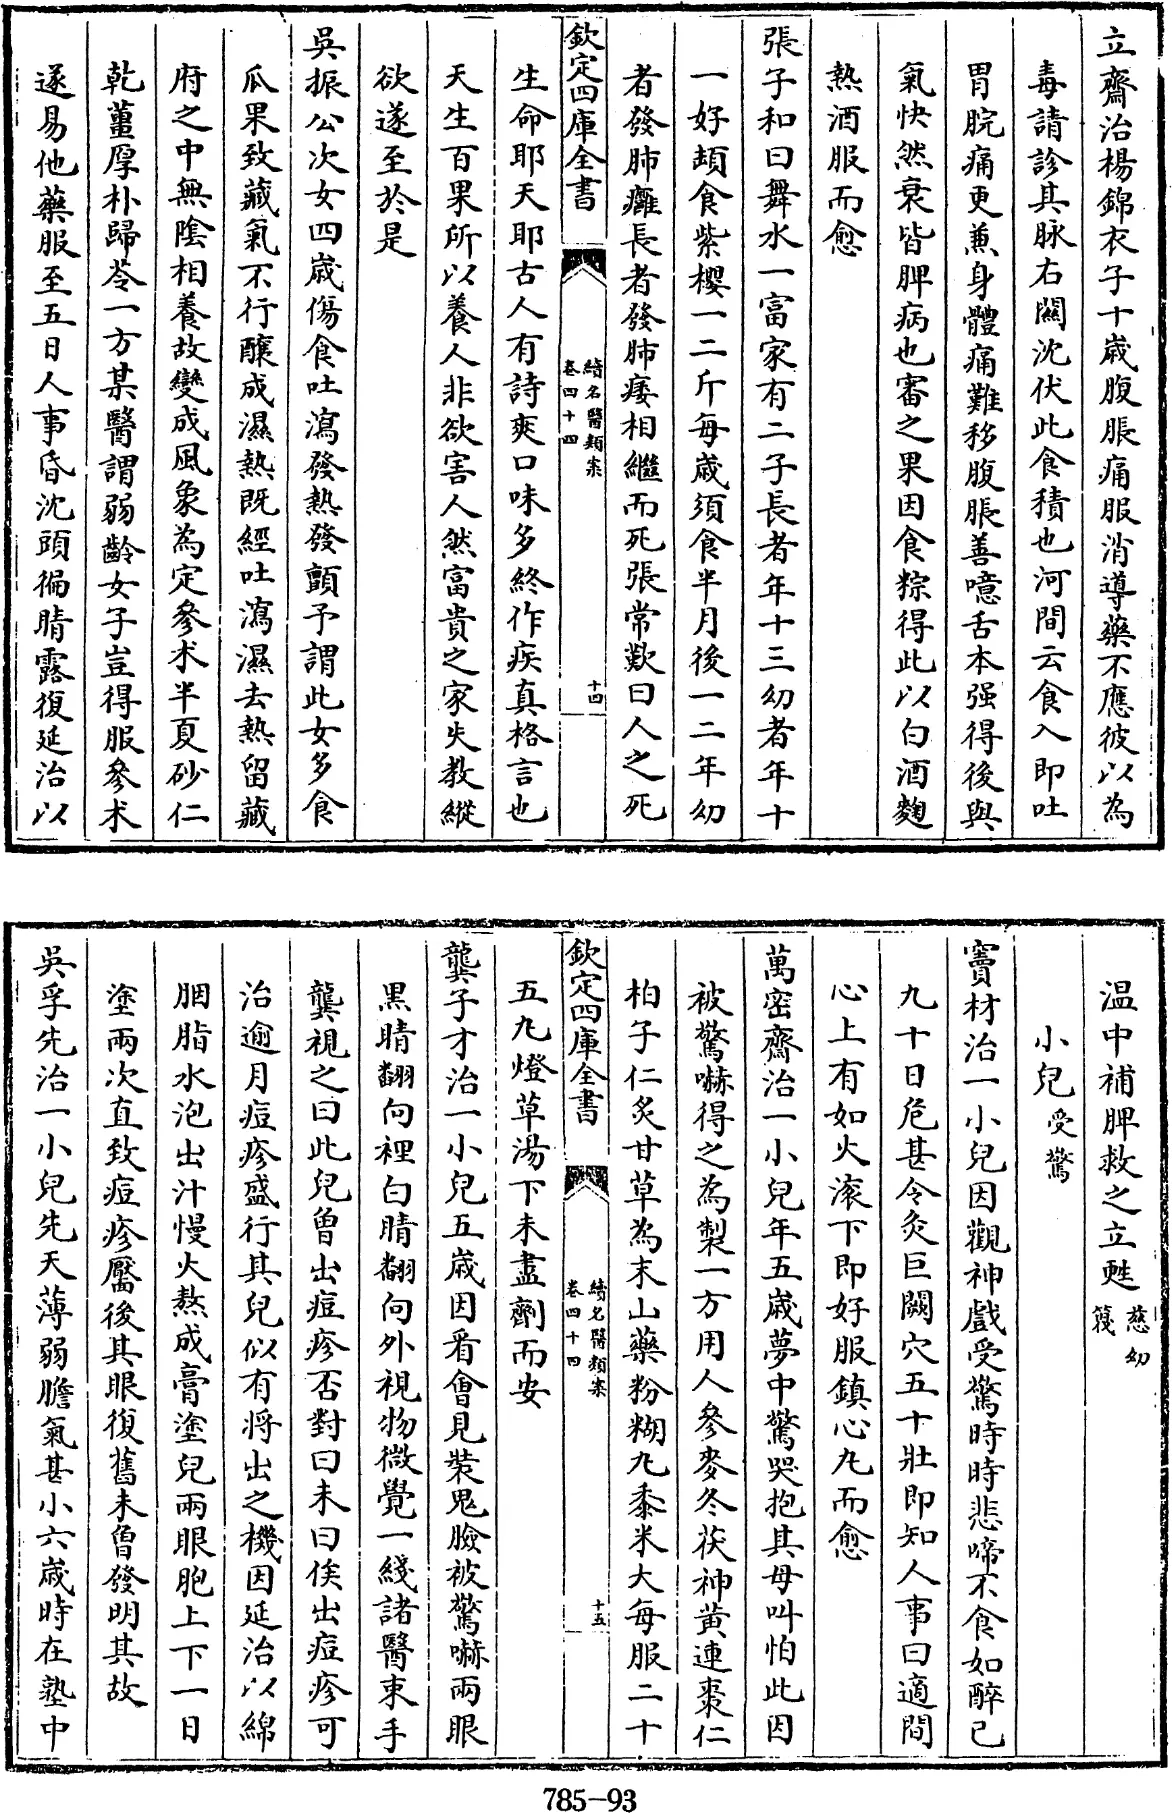 立齋治楊錦衣子十歲腹脹痛服消導藥不應彼以為
毒請診其脉右關沈伏此食積也河間云食入即吐
胃脘痛更兼身體痛難移腹脹善噫舌本强得後與
氣快然衰皆脾病也審之果因食粽得此以白酒麴
熱酒服而愈
張子和曰舞水一富家有二子長者年十三幼者年十
一好頡食紫櫻一二斤每歲須食半月後一二年幼
者發肺癰長者發肺痿相繼而死張常歎曰人之死
欽定四庫全書
續名醫類案
卷四十四
十四
生命耶天耶古人有詩爽口味多終作疾真格言也
天生百果所以養人非欲害人然富貴之家失教縱
欲遂至於是
吳振公次女四歲傷食吐瀉發熱發顫予謂此女多食
瓜果致藏氣不行釀成濕熱既經吐瀉濕去熱留藏
府之中無陰相養故變成風象為定參朮半夏砂仁
乾薑厚朴歸苓一方某醫謂弱齡女子豈得服參朮
遂易他藥服至五日人事昏沈頭徧睛露復延治以
温中補脾救之立甦慈幼
筏
小兒受驚
竇材治一小兒因觀神戲受驚時時悲啼不食如醉已
九十日危甚令灸巨闕穴五十壯即知人事曰適間
心上有如火滚下即好服鎮心丸而愈
萬密齋治一小兒年五歲夢中驚哭抱其母叫怕此因
被驚嚇得之為製一方用人參麥冬茯神黄連棗仁
柏子仁炙甘草為末山藥粉糊丸黍米大每服二十
欽定四庫全書
續名醫類案
卷四十四
十五
五丸燈草湯下未盡劑而安
龔子才治一小兒五歲因看會見裝鬼臉被驚嚇兩眼
黑睛翻向裡白睛翻向外視物微覺一綫諸醫束手
龔視之曰此兒曾出痘疹否對曰未曰俟出痘疹可
治逾月痘疹盛行其兒似有將出之機因延治以綿
胭脂水泡出汁慢火熬成膏塗兒兩眼胞上下一日
塗兩次直致痘疹靨後其眼復舊未曾發明其故
吳孚先治一小兒先天薄弱膽氣甚小六歲時在塾中
785-93